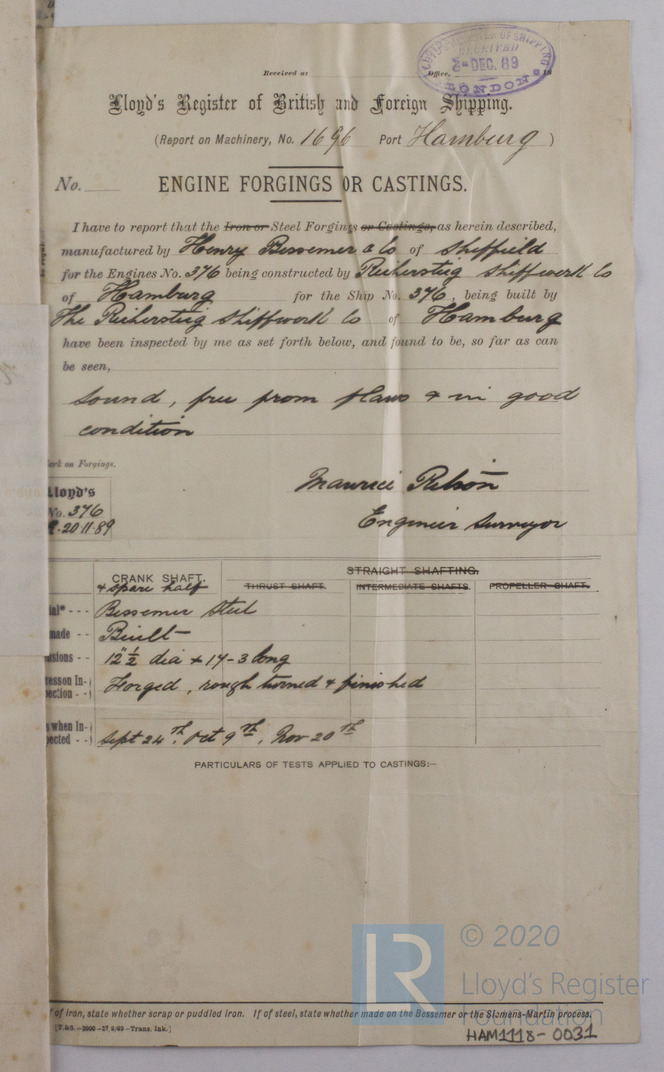 LLOYD'S REGISTER OF SHIPPING
RECEIVED
DEC. 89
LONDON
Received at Office, 18
Lloyd's Register of British and Foreign Shipping.
(Report on Machinery, No. 1696 Port Hamburg )
No. ENGINE FORGINGS OR CASTINGS.
I have to report that the Iron or Steel Forgings or Castings, as herein described,
manufactured by Henry Bessemer & Co of Sheffield
for the Engines No. 376 being constructed by Reiherstieg Shiffwerk Co
of Hamburg for the Ship No. 376, being built by
The Reiherstieg Shiffwerk Co of Hamburg
have been inspected by me as set forth below, and found to be, so far as can
be seen,
Sound, free from flaws & in good
condition
on Forgings.
Lloyd's
No. 376
20.11.89
Maurice
Engineer Surveyor
STRAIGHT SHAFTING.
CRANK SHAFT. THRUST SHAFT. INTERMEDIATE SHAFTS. PROPELLER SHAFT.
& spare half
Bessemer Steel
made Built
12"½ dia × 17-3 long
Forged, rough turned & finished
when In-
Sept 24th, Oct 9th, Nov 20th
PARTICULARS OF TESTS APPLIED TO CASTINGS:—
© 2020
LR
Lloyd's Register
Foundation
of iron, state whether scrap or puddled iron. If of steel, state whether made on the Bessemer or the Siemens-Martin process.
Trans. Ink.]
HAM1118-0031